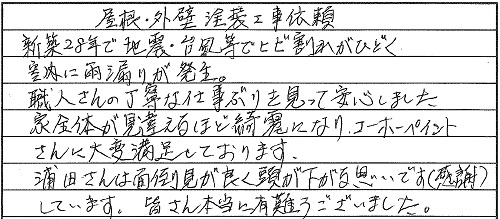 屋根・外壁塗装工事依頼
新築28年で地震・台風等でヒビ割れがひどく
室内に雨漏りが発生。
職人さんの丁寧な仕事ぶりを見って安心しました
家全体が見違えるほど綺麗になり、コーホーペイント
さんに大変満足しております。
浦田さんは面倒見が良く頭が下がる思いです(感謝)
しています。皆さん本当に有難うございました。